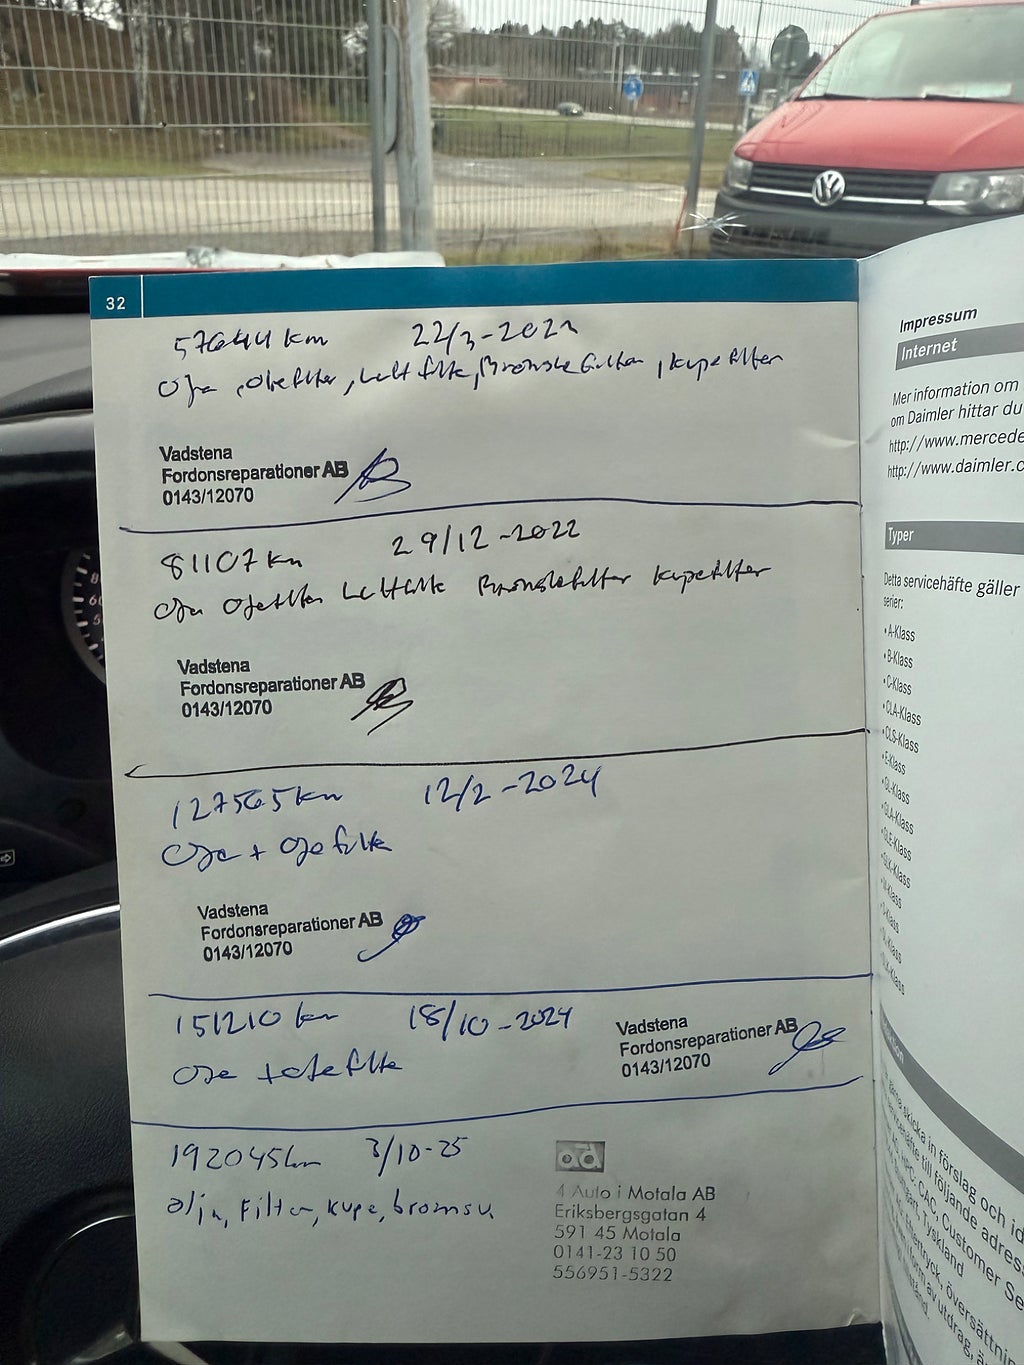 32
57644 km 22/3-2022
Olja, oljefilter, luftfilte, Bränslefilter, kupefilter
Vadstena
Fordonsreparationer AB
0143/12070
81107 km 29/12-2022
Olja Oljefilter Luftfilte Bränslefilter kupefilter
Vadstena
Fordonsreparationer AB
0143/12070
127565 km 12/2-2024
Olja + Oljefilte
Vadstena
Fordonsreparationer AB
0143/12070
151210 km 18/10-2024
Olja + oljefilte
Vadstena
Fordonsreparationer AB
0143/12070
192045 km 3/10-25
olja, Filter, kupe, bromsv.
4 Auto i Motala AB
Eriksbergsgatan 4
591 45 Motala
0141-23 10 50
556951-5322
Impressum
Internet
Mer information om
om Daimler hittar du
http://www.mercede
http://www.daimler.c
Typer
Detta servicehäfte gäller
serier:
• A-Klass
• B-Klass
• C-Klass
• CLA-Klass
• CLS-Klass
• E-Klass
• GL-Klass
• GLA-Klass
• GLE-Klass
• GLK-Klass
gärna skicka in förslag och id
servicehäfte till följande adress
HPC: CAC, Customer Se
Stuttgart, Tyskland
eftertryck, översättnin
form av utdrag, ä